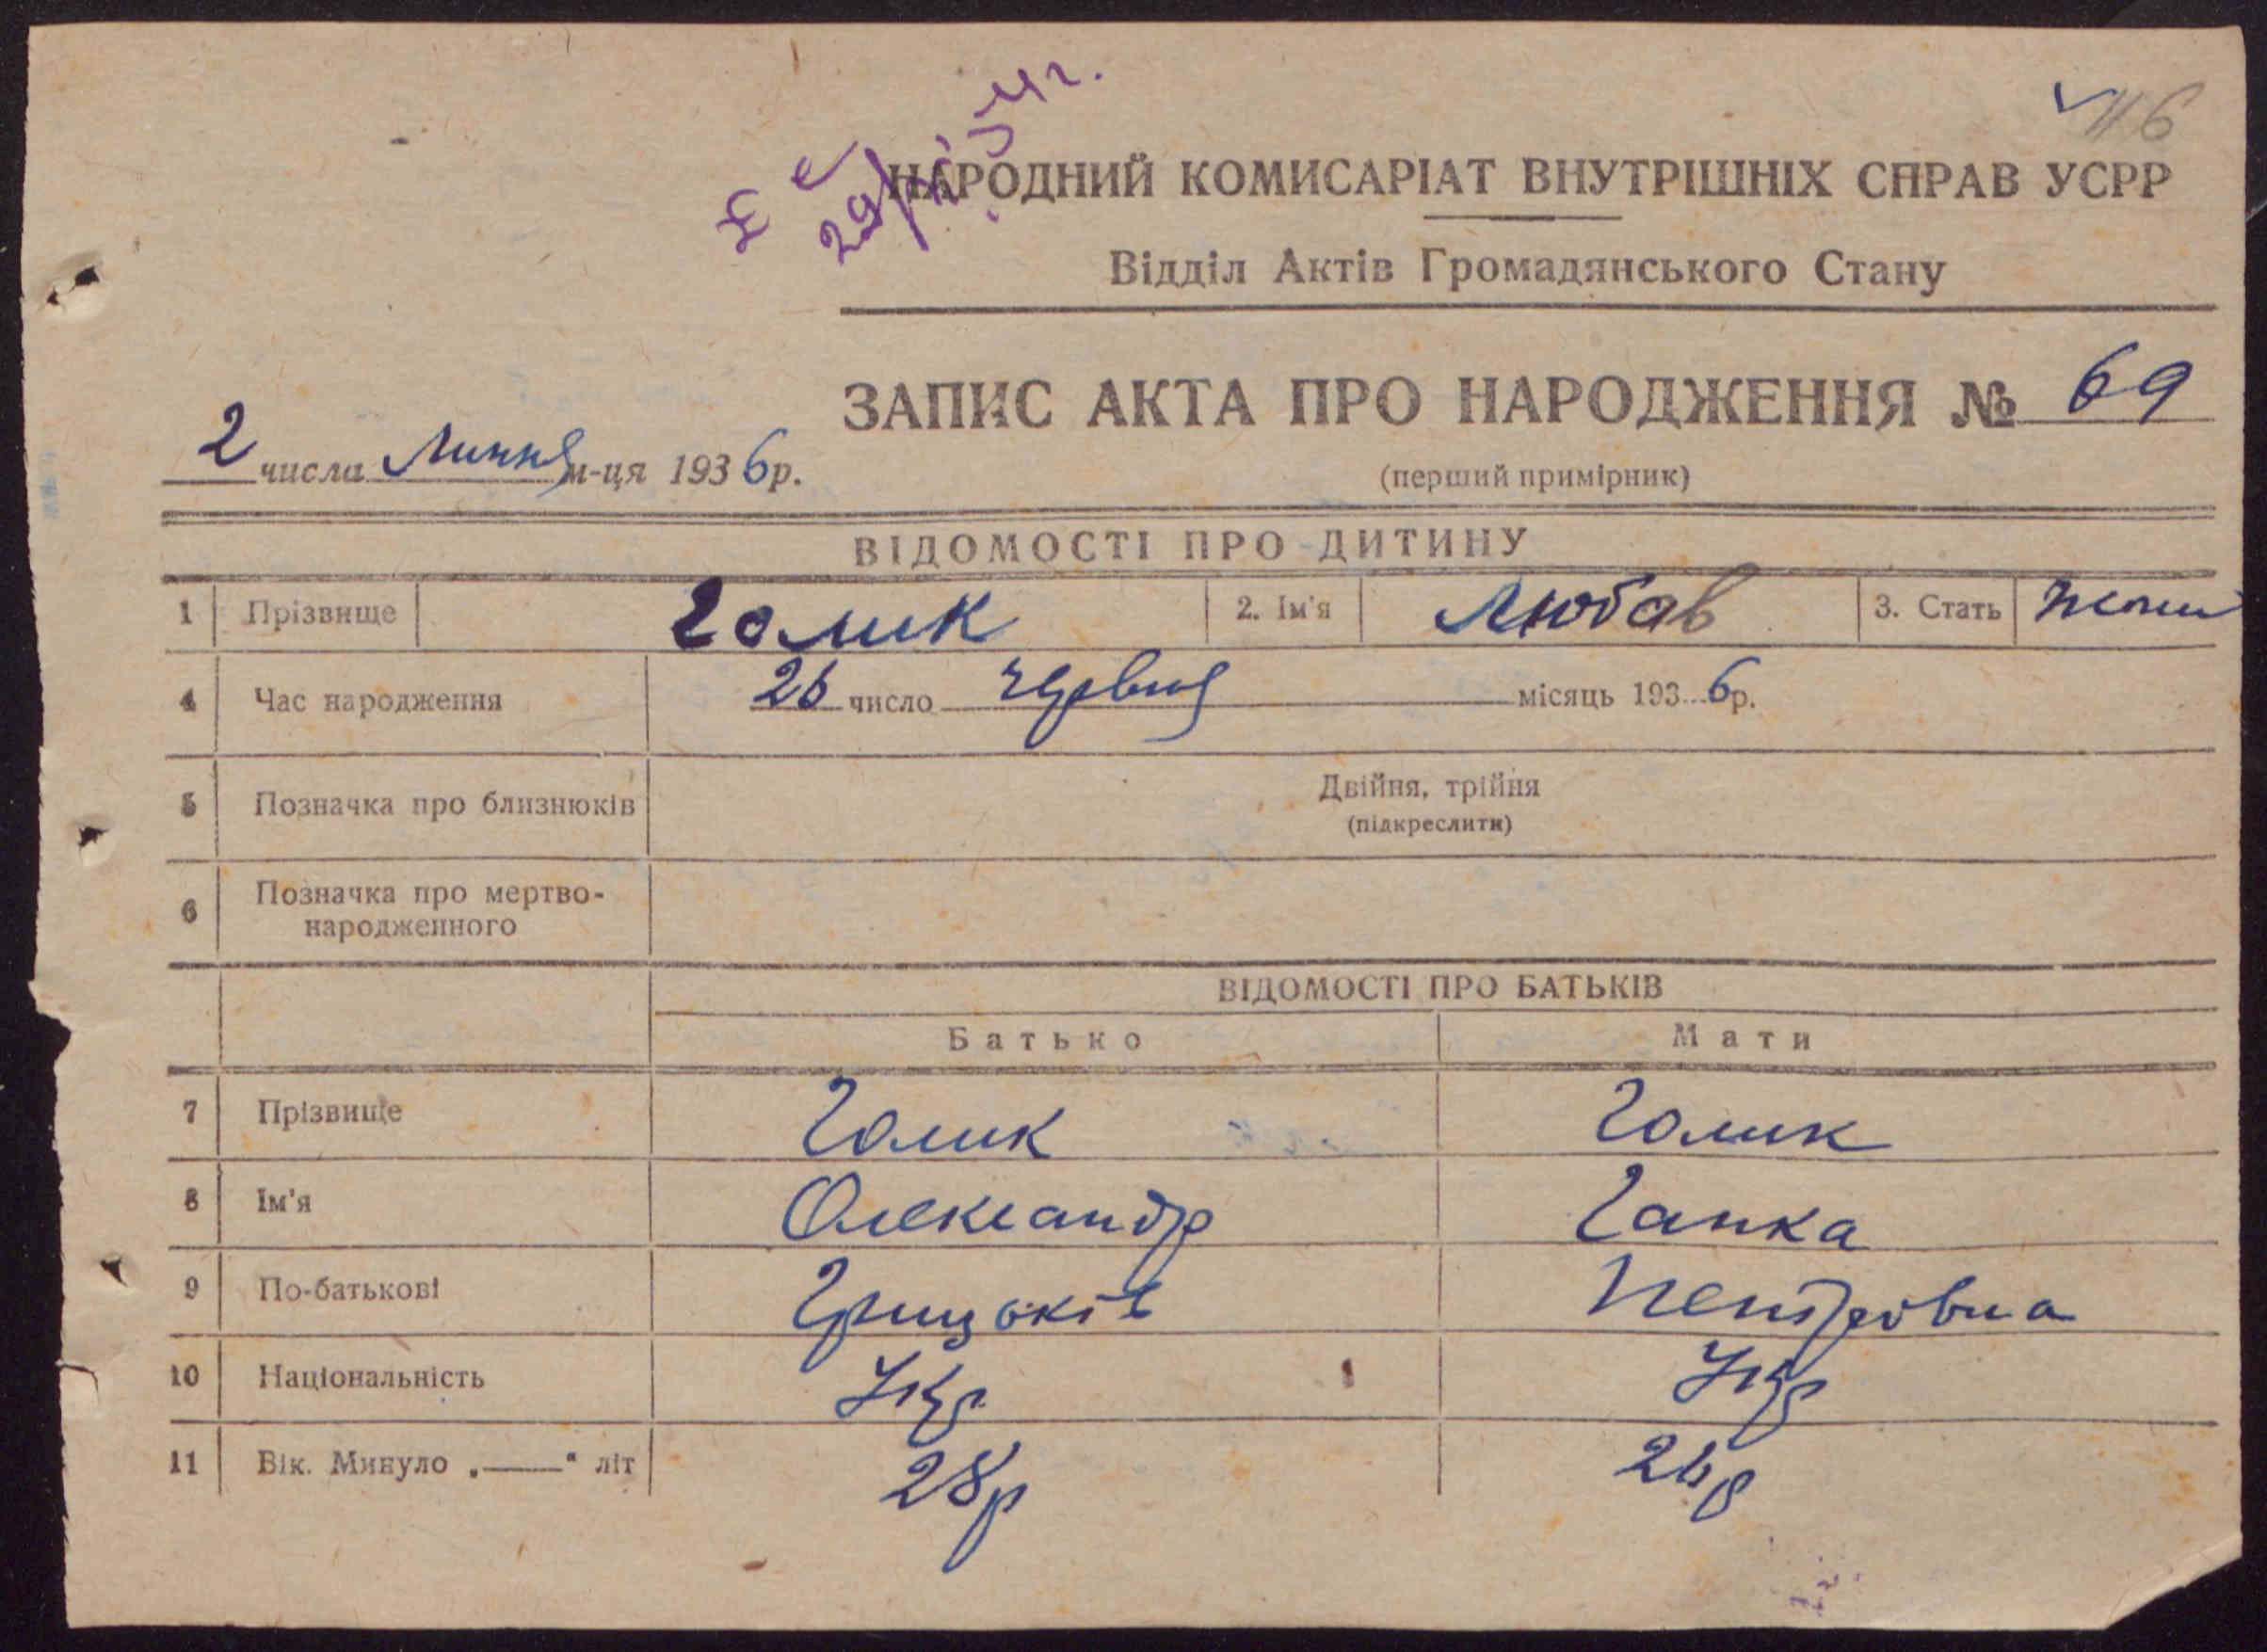 116
НАРОДНИЙ КОМИСАРІАТ ВНУТРІШНІХ СПРАВ УСРР
Відділ Актів Громадянського Стану
ЗАПИС АКТА ПРО НАРОДЖЕННЯ № 69
2 числа Липня м-ця 1936р.
(перший примірник)
ВІДОМОСТІ ПРО ДИТИНУ
1 Прізвище Голик 2. Ім'я Любов 3. Стать
4 Час народження 26 число червня місяць 1936р.
5 Позначка про близнюків Двійня, трійня
(підкреслити)
6 Позначка про мертво-
народженного
ВІДОМОСТІ ПРО БАТЬКІВ
Батько Мати
7 Прізвище Голик Голик
8 Ім'я Олександр Ганка
9 По-батькові Грицьків Петровна
10 Національність Укр Укр
11 Вік. Минуло „——“ літ 28р 26р